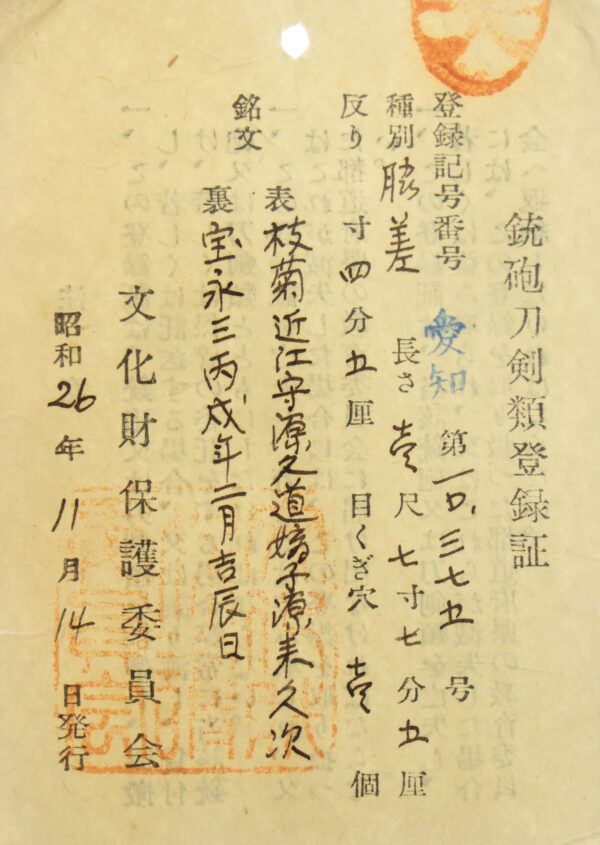 銃砲刀剣類登録証
登録記号番号 愛知 第一〇、三七五 号
種別 脇差 長さ 壱 尺 七 寸 七 分 五 厘
反り 寸 四 分 五 厘 目くぎ穴 壱 個
銘文
表 枝菊近江守源久道嫡子源来久次
裏 宝永三丙戌年二月吉辰日
文化財保護委員会
昭和 26 年 11 月 14 日発行